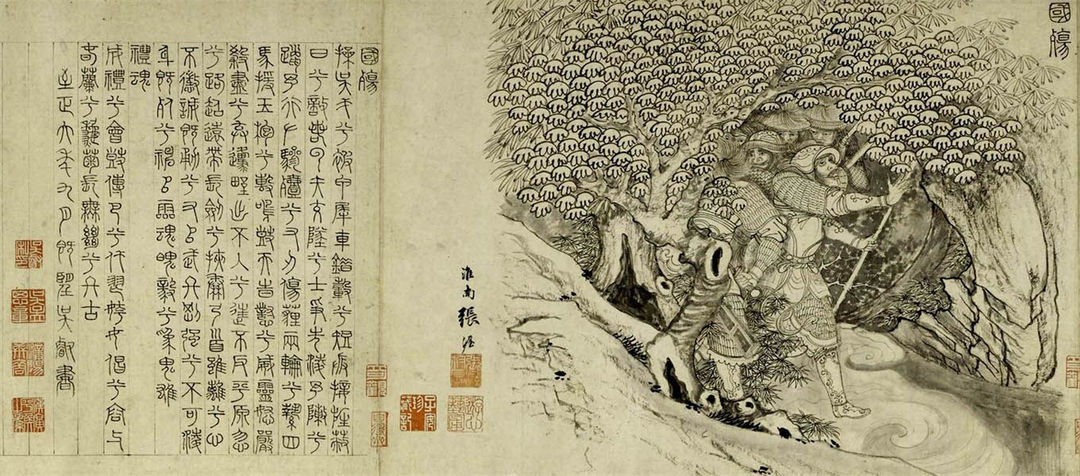 國殤
淮南張渥
國殤
操吳戈兮被犀甲車錯轂兮短兵接旌蔽
日兮敵若雲矢交墜兮士爭先淩余陳兮
躐余行左驂殪兮右刃傷霾兩輪兮縶四
馬援玉枹兮擊鳴鼓天時懟兮威靈怒嚴
殺盡兮棄原野出不入兮往不反平原忽
兮路超遠帶長劍兮挾秦弓首雖離兮心
不懲誠既勇兮又以武終剛強兮不可淩
身既死兮神以靈魂魄毅兮為鬼雄
禮魂
成禮兮會鼓傳芭兮代舞姱女倡兮容與
春蘭兮秋菊長無絕兮終古
至正六年九月既望吳叡書